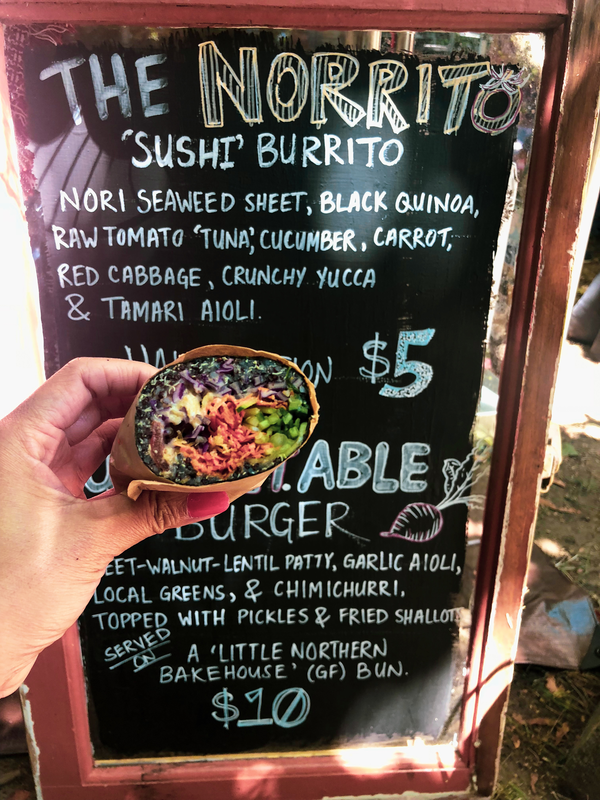 THE NORRITO
'SUSHI' BURRITO
NORI SEAWEED SHEET, BLACK QUINOA,
RAW TOMATO 'TUNA', CUCUMBER, CARROT,
RED CABBAGE, CRUNCHY YUCCA
& TAMARI AIOLI.
$5
ABLE
BURGER
EET-WALNUT-LENTIL PATTY, GARLIC AIOLI,
LOCAL GREENS, & CHIMICHURRI,
TOPPED WITH PICKLES & FRIED SHALLOT
SERVED ON A 'LITTLE NORTHERN
BAKEHOUSE' (GF) BUN.
$10